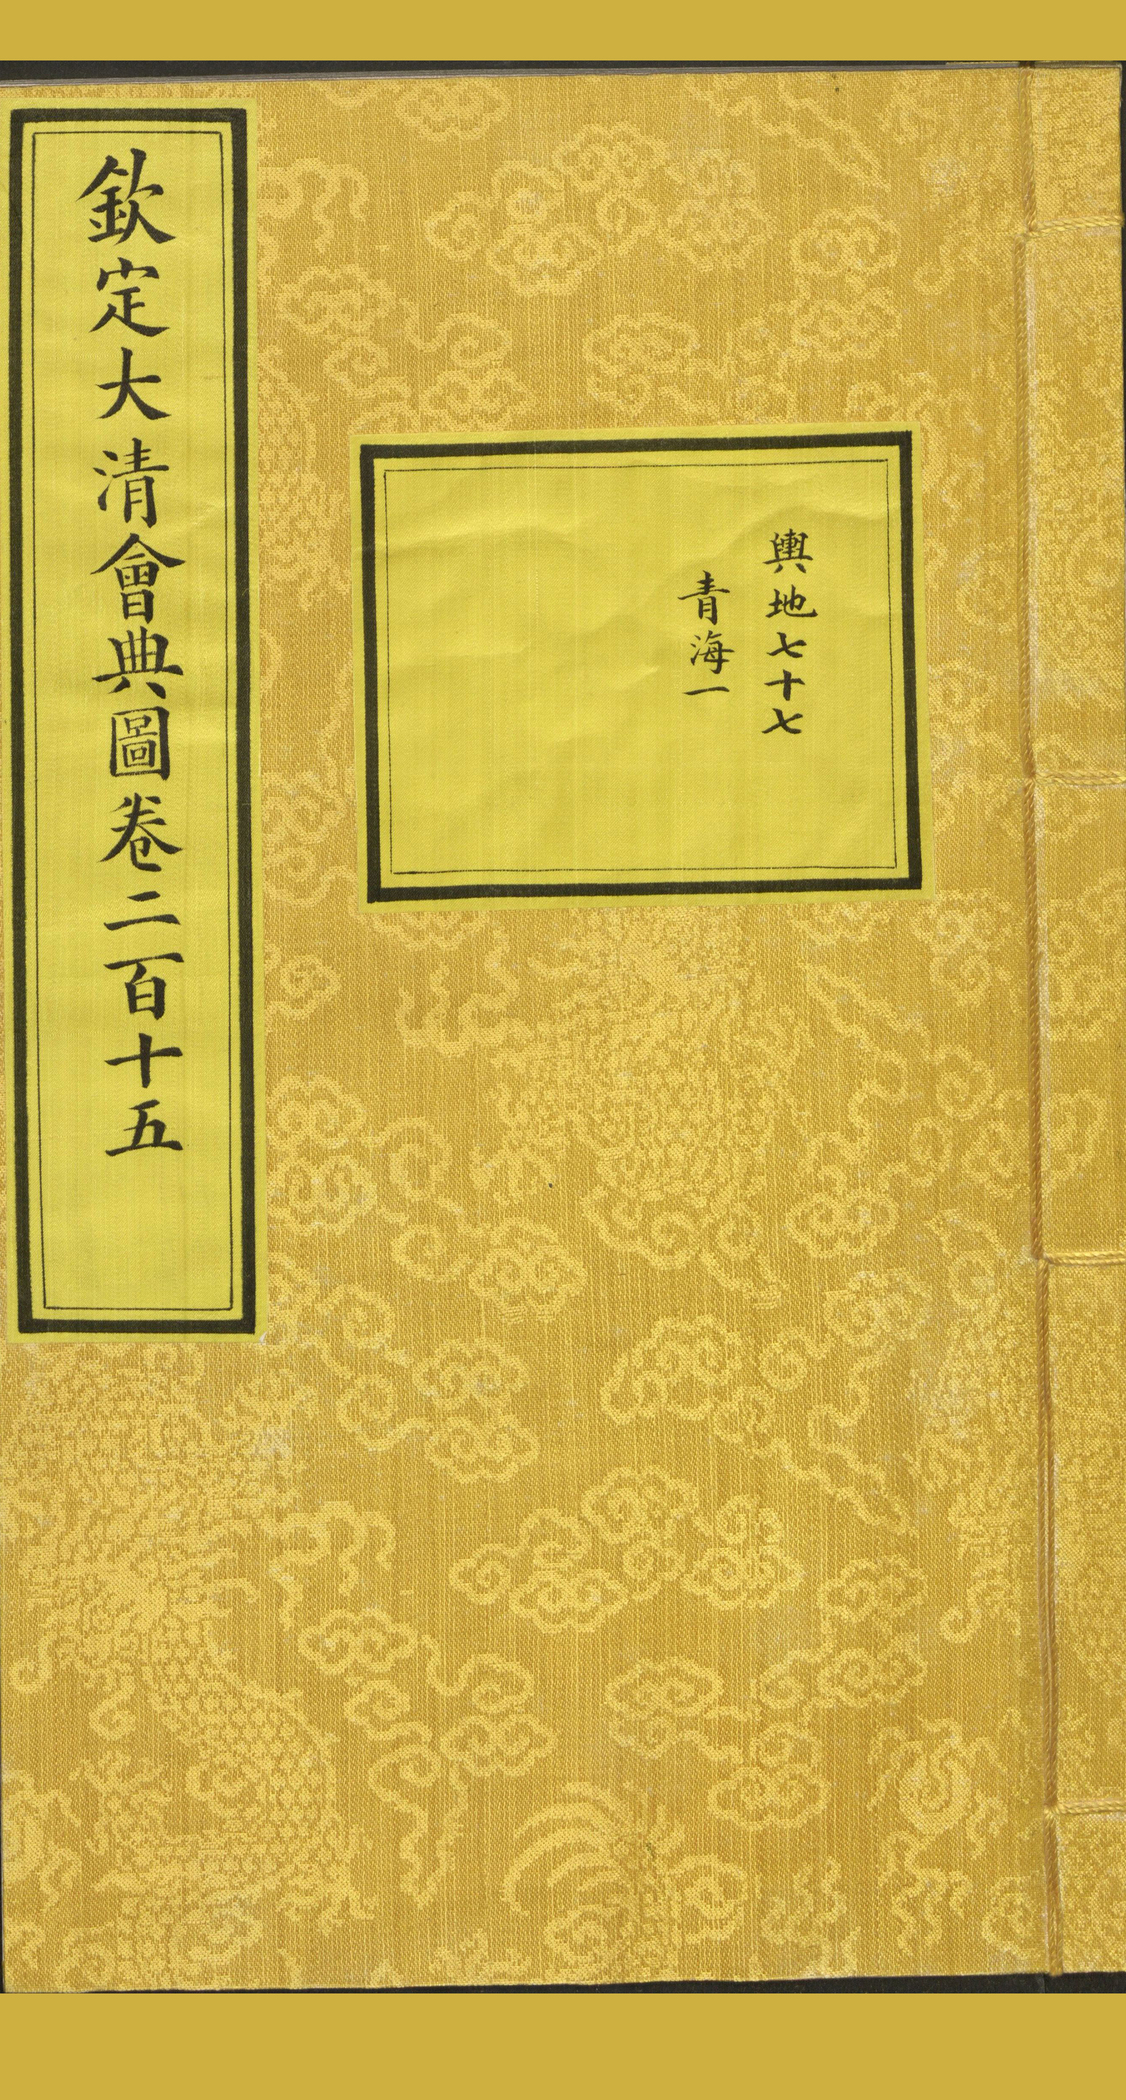 欽定大清會典圖卷二百十五
輿地七十七
青海一